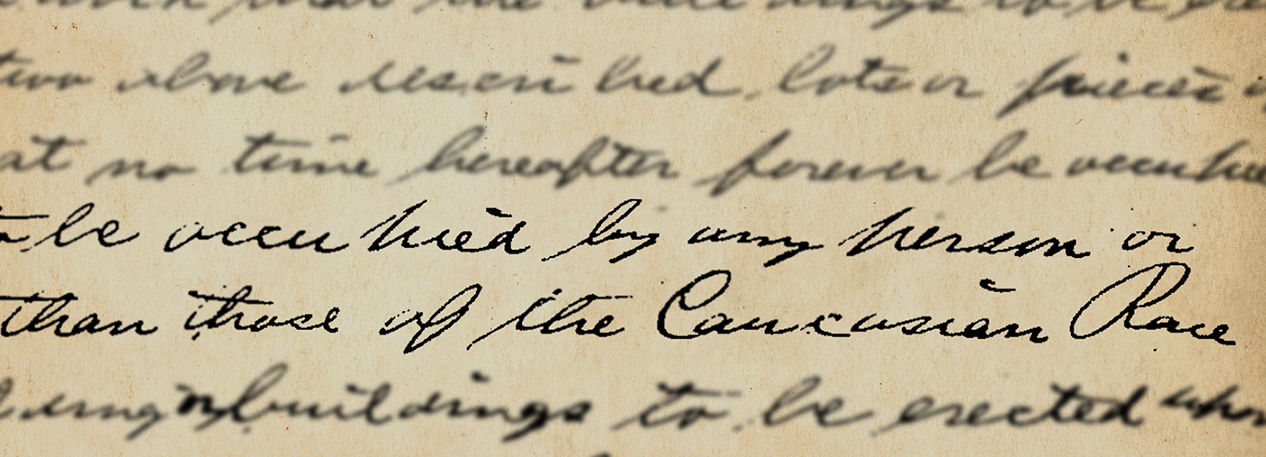 two above described lots or pieces
at no time hereafter forever be occupied
to be occupied by any person or
than those of the Caucasian Race
buildings to be erected